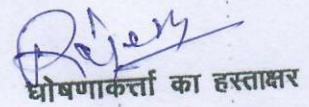 Rajesh
घोषणाकर्त्ता का हस्ताक्षर